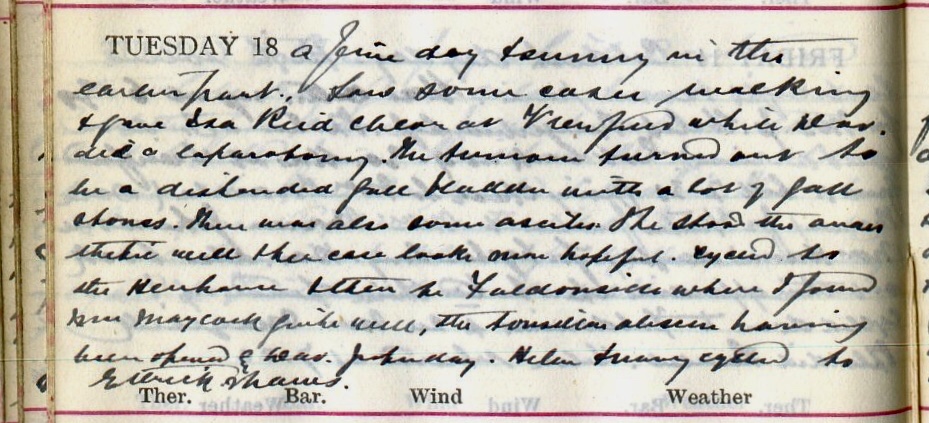 TUESDAY 18 a fine day & sunny in the
earlier part. Saw some cases walking
& gave Isa Reid Chlor at Viewfield while Dav.
did a laparotomy. The tumour turned out to
be a distended gall bladder with a lot of gall
stones. There was also some ascites. She stood the anaes
thetic well & her case looks more hopeful. Cycled to
the Henhouse & then to Faldonside where I found
Mrs Maycock quite well, the tonsillar abscess having
been opened by Dav. yesterday. Helen & Nancy cycled to
Ettrick Shaws.
Ther. Bar. Wind Weather